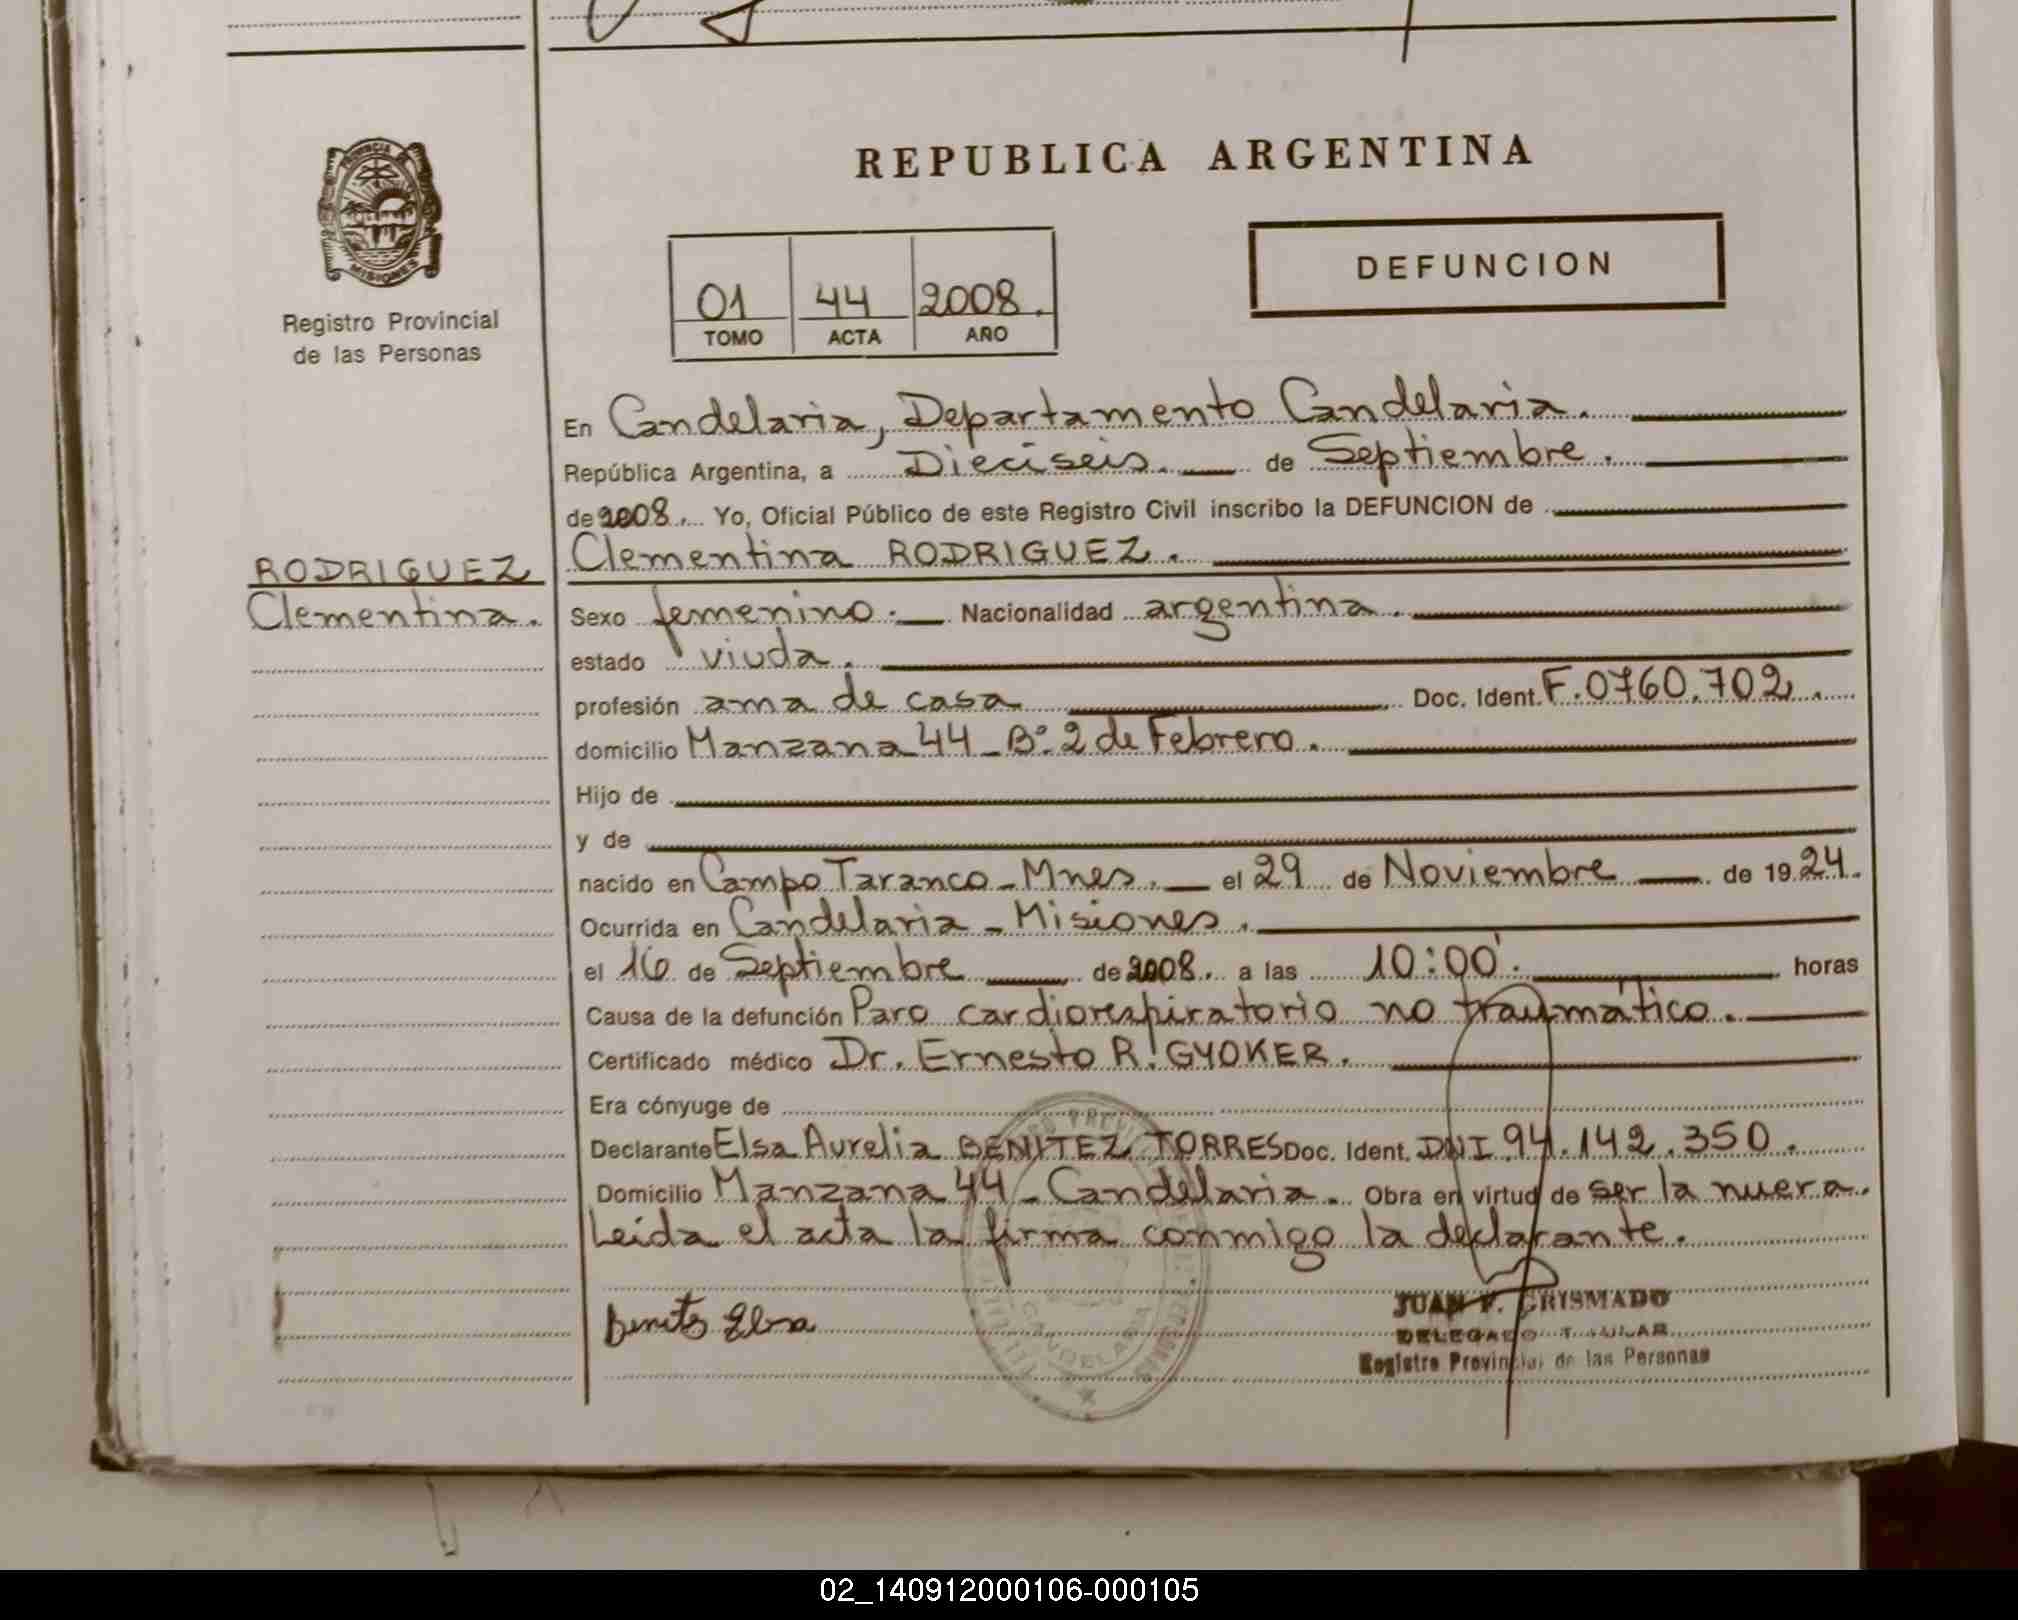 REPUBLICA ARGENTINA
PROVINCIA DE
MISIONES
Registro Provincial
de las Personas
DEFUNCION
01 44 2008.
TOMO ACTA AÑO
En Candelaria, Departamento Candelaria.
República Argentina, a Dieciseis. de Septiembre.
de 2008. Yo, Oficial Público de este Registro Civil inscribo la DEFUNCION de
Clementina RODRIGUEZ.
RODRIGUEZ
Clementina.
Sexo femenino. Nacionalidad argentina.
estado viuda.
profesión ama de casa Doc. Ident. F.0760.702.
domicilio Manzana 44_Bº.2 de Febrero.
Hijo de
y de
nacido en Campo Taranco_Mnes. el 29 de Noviembre de 1924.
Ocurrida en Candelaria_Misiones.
el 16 de Septiembre de 2008. a las 10:00'. horas
Causa de la defunción Paro cardiorespiratorio no traumático.
Certificado médico Dr. Ernesto R. GYOKER.
Era cónyuge de
Declarante Elsa Aurelia BENITEZ TORRES Doc. Ident. DNI 94.142.350.
Domicilio Manzana 44_Candelaria. Obra en virtud de ser la nuera.
Leída el acta la firma conmigo la declarante.
Benitz Elsa
CANDELARIA
JUAN F. GRISMADO
DELEGADO TITULAR
Registro Provincial de las Personas
02_140912000106-000105